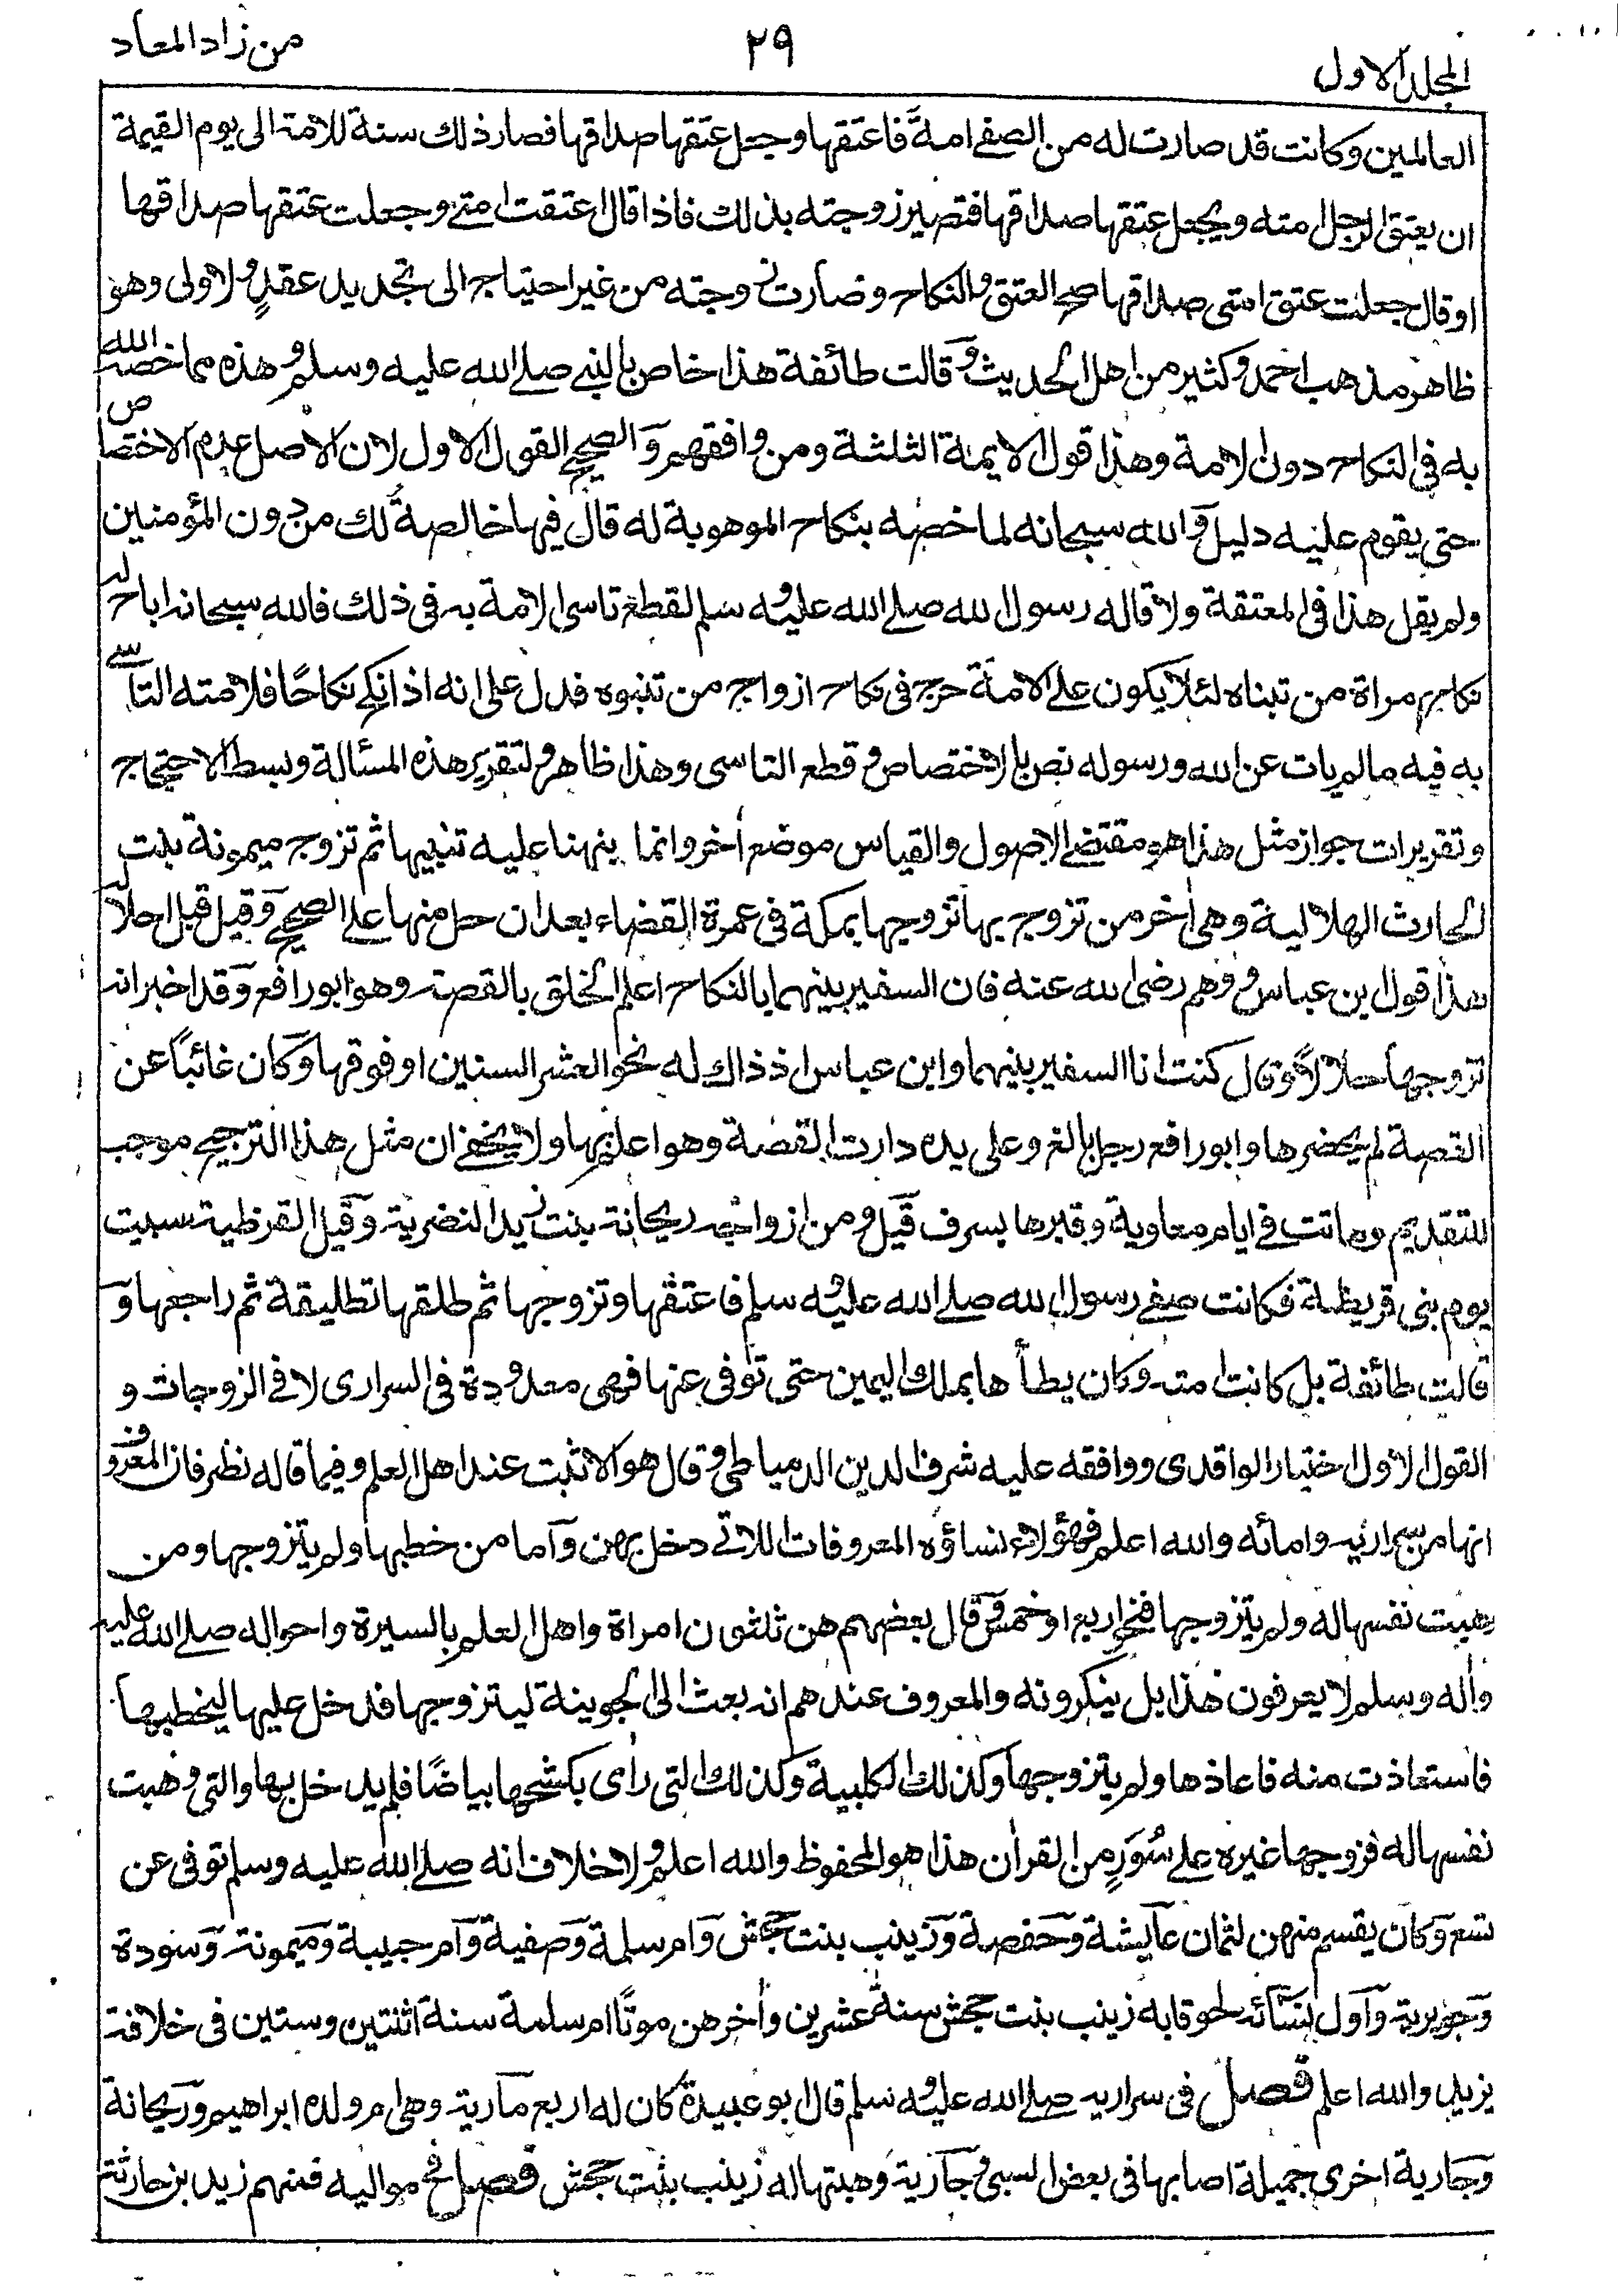 المجلد الاول
٢٩
من زاد المعاد
العالمين وكانت قد صارت له من الصفے امةً فاعتقها وجعل عتقها صداقها فصار ذلك سنة للامة الى يوم القيمة
ان يعتق الرجل امته ويجعل عتقها صداقها فتصير زوجته بذلك فاذا قال اعتقت امتے وجعلت عتقها صداقها
او قال جعلت عتق امتى صداقها صح العتق والنكاح وصارت زوجته من غير احتياج الى تجديد عقدٍ ولا ولى وهو
ظاهر مذهب احمد وكثير من اهل الحديث وقالت طائفة هذا خاص بالنبے صلے الله عليه وسلم وهذه مما خصه الله
به فى النكاح دون الامة وهذا قول الايمة الثلثة ومن وافقهم والصحيح القول الاول لان الاصل عدم الاختصاص
حتى يقوم عليه دليل والله سبحانه لما خصه بنكاح الموهوبة له قال فيها خالصةً لك من دون المؤمنين
ولم يقل هذا فى المعتقة ولا قاله رسول الله صلے الله عليه وسلم لقطع تاسى الامة به فى ذلك فالله سبحانه اباح له
نكاح امراة من تبناه لئلا يكون علے الامة حرج فى نكاح ازواج من تبنوه فدل على انه اذا نكح نكاحًا فلامته التاسے
به فيه مالم يات عن الله ورسوله نص بالاختصاص وقطع التاسى وهذا ظاهر ولتقرير هذه المسألة وبسط الاحتجاج
وتقريرات جواز مثل هذا هو مقتضے الاصول والقياس موضع اخر وانما ينهنا عليه تنبيها ثم تزوج ميمونة بنت
الحارث الهلالية وهى اخر من تزوج بها تزوجها بمكة فى عمرة القضاء بعد ان حل منها علے الصحيح وقيل قبل احلاله
هذا قول ابن عباس ووهم رضى الله عنه فان السفير بينهما بالنكاح اعلم الخلق بالقصة وهو ابو رافع وقد اخبر انه
تزوجها حلالًا وقال كنت انا السفير بينهما وابن عباس اذ ذاك له نحو العشر السنين او فوقها وكان غائبًا عن
القصة لم يحضرها وابو رافع رجل بالغ وعلى يده دارت القصة وهو اعلم بها ولا يخفے ان مثل هذا الترجيح موجب
للتقديم وماتت فى ايام معاوية وقبرها بسرف قيل ومن ازواجه ريحانة بنت زيد النضرية وقيل القرظية سبيت
يوم بنى قريظة فكانت صفے رسول الله صلے الله عليه وسلم فاعتقها وتزوجها ثم طلقها تطليقة ثم راجعها و
قالت طائفة بل كانت امته وكان يطأها بملك اليمين حتى توفى عنها فهى معدودة فى السرارى لا فے الزوجات و
القول الاول اختيار الواقدى ووافقه عليه شرف الدين الدمياطى وقال هو الاثبت عند اهل العلم وفيما قاله نظر فان المعروف
انها من سراريه وامائه والله اعلم فهؤلاء نساؤه المعروفات اللاتے دخل بهن واما من خطبها ولم يتزوجها ومن
وهبت نفسها له ولم يتزوجها فنحو اربع او خمس وقال بعضهم هن ثلثون امراة واهل العلم بالسيرة واحواله صلے الله عليه
واله وسلم لا يعرفون هذا بل ينكرونه والمعروف عندهم انه بعث الى الجوينة ليتزوجها فدخل عليها ليخطبها
فاستعاذت منه فاعاذها ولم يتزوجها وكذلك الكلبية وكذلك التى راى بكشحها بياضًا فلم يدخل بها والتى وهبت
نفسها له فزوجها غيره علے سُوَرٍ من القران هذا هو المحفوظ والله اعلم ولا خلاف انه صلے الله عليه وسلم توفى عن
تسع وكان يقسم منهن لثمان عايشة وحفصة وزينب بنت جحش وام سلمة وصفية وام حبيبة وميمونة وسودة
وجويرية واول نسائه لحوقا به زينب بنت جحش سنة عشرين واخرهن موتًا ام سلمة سنة اثنتين وستين فى خلافة
يزيد والله اعلم فصل فى سراريه صلے الله عليه وسلم قال ابو عبيدة كان له اربع مارية وهى ام ولده ابراهيم وريحانة
وجارية اخرى جميلة اصابها فى بعض السبى وجارية وهبتها له زينب بنت جحش فصل فے مواليه فمنهم زيد بن حارثة